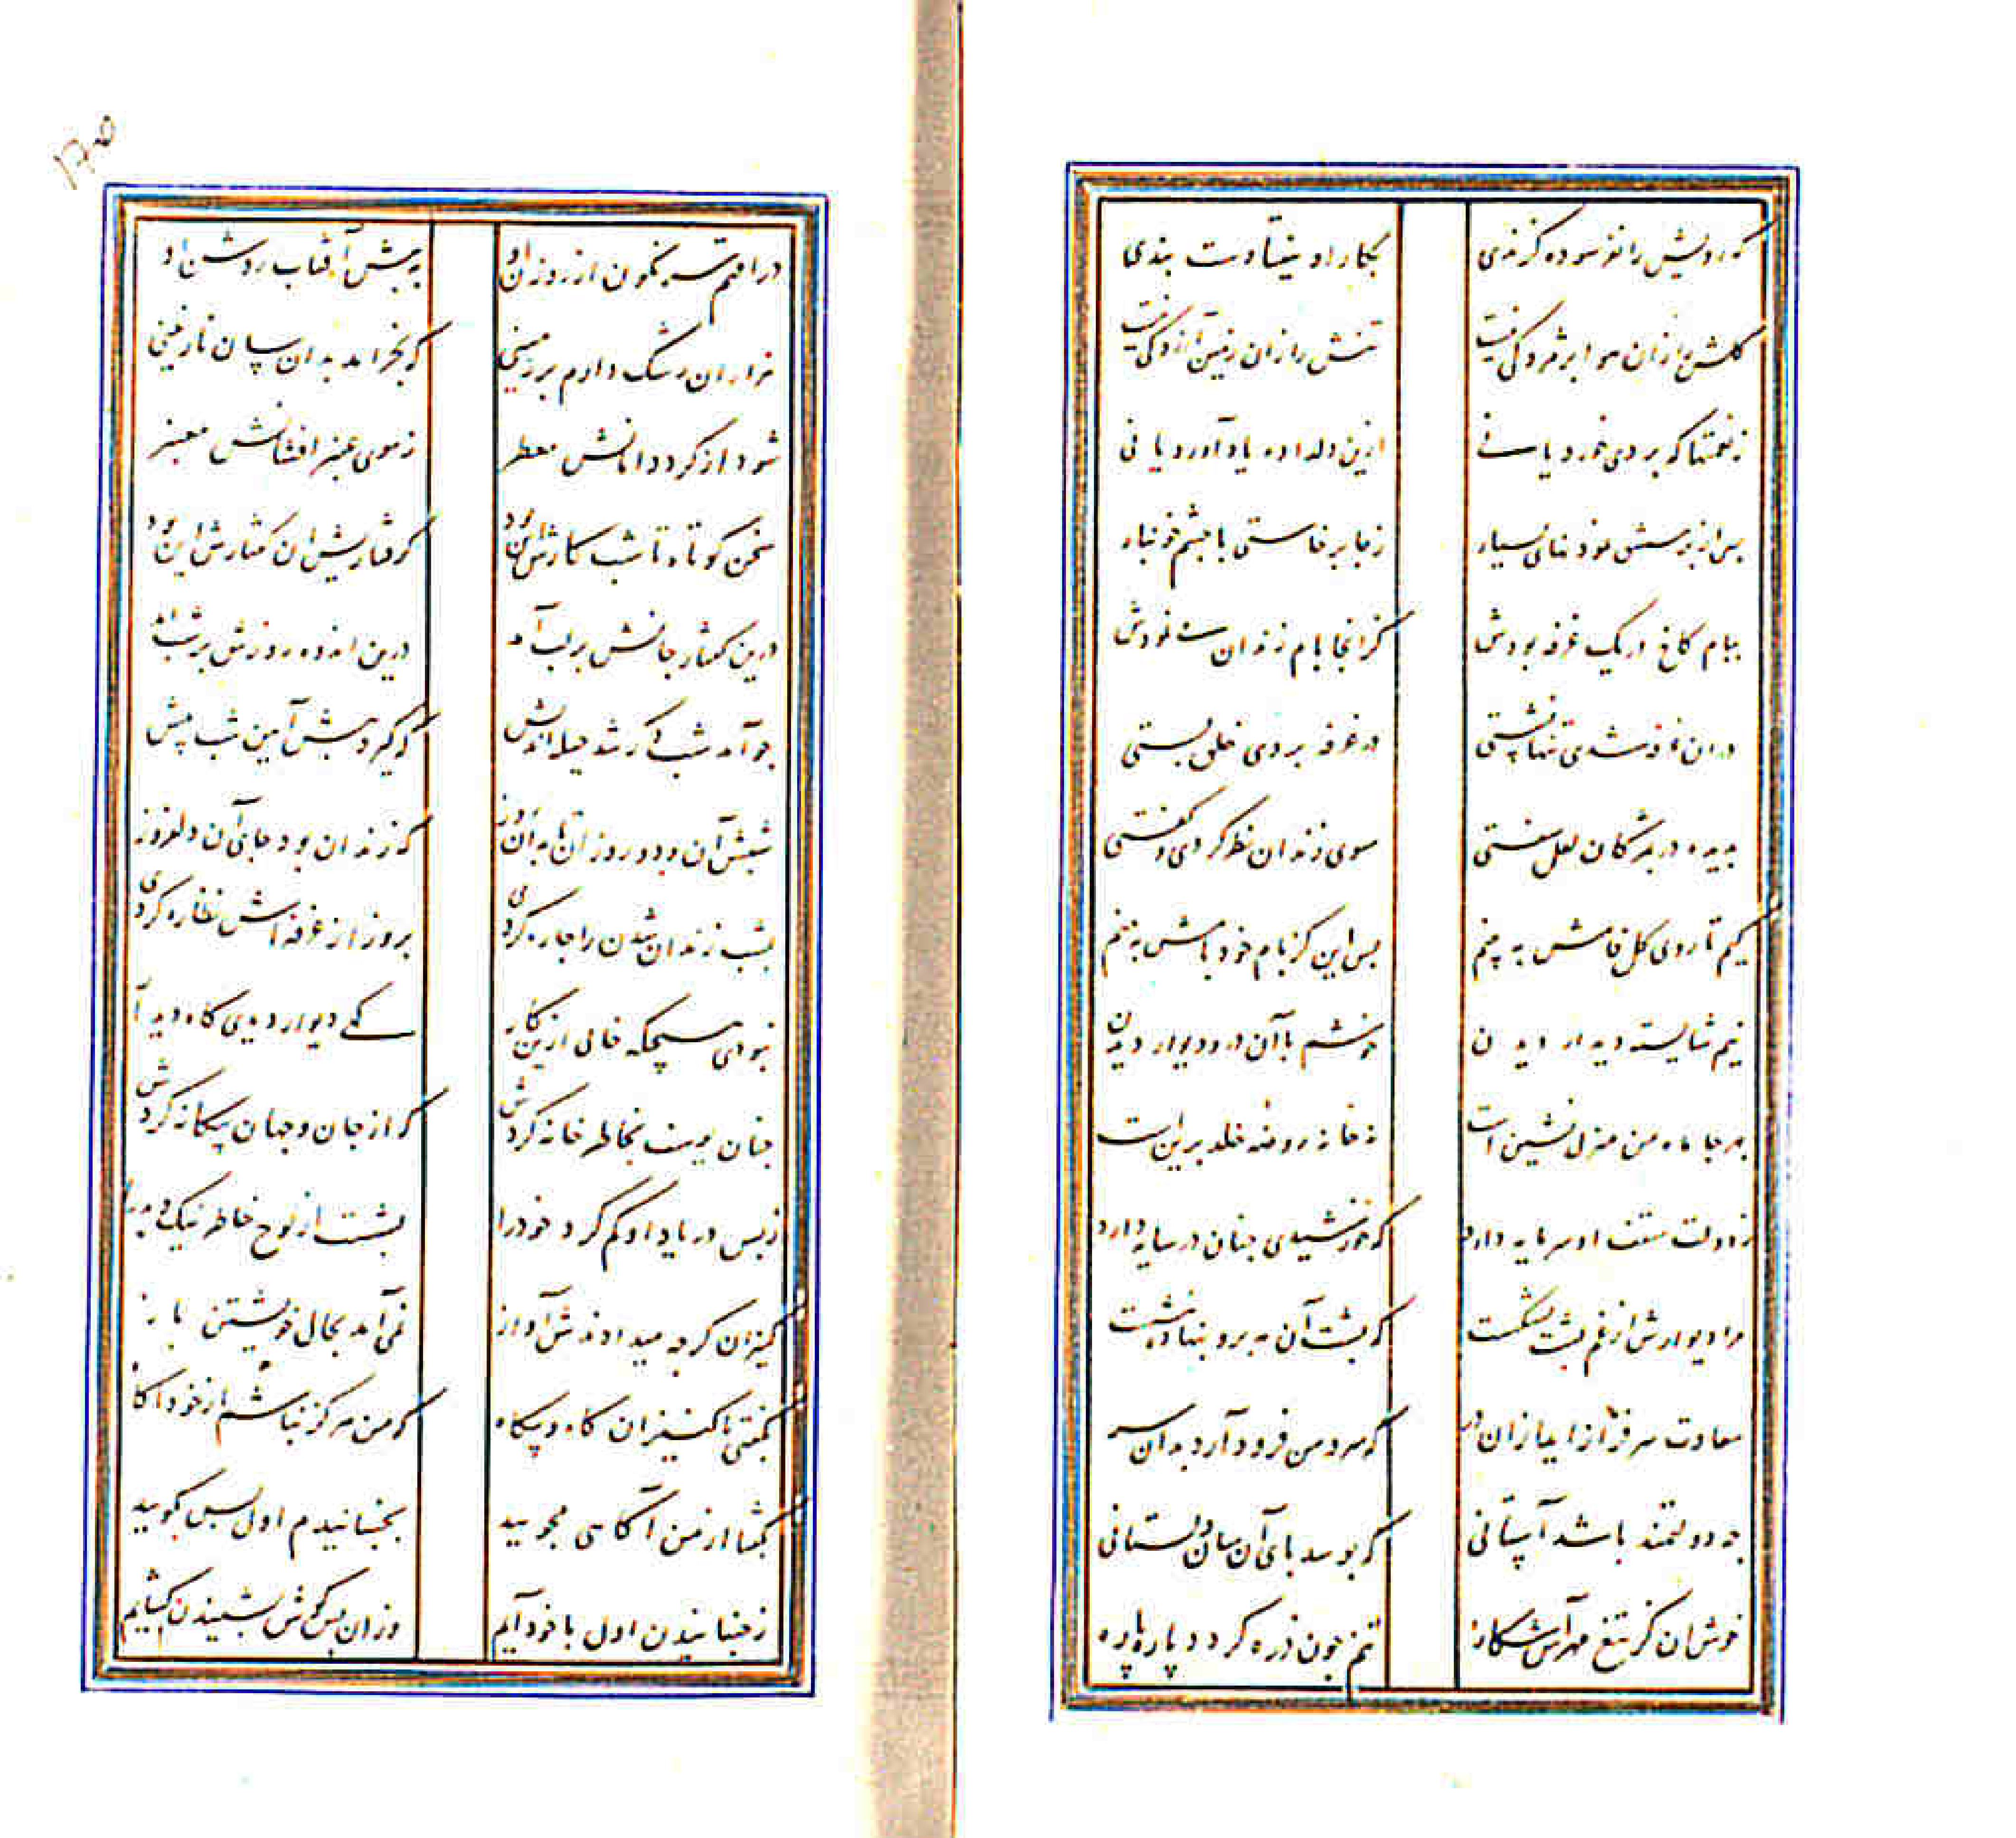 که رویش را نفرسوده گزندی بکار او نیفتاوست بندی
گلش را زان هوا پژمردگی نیست تنش را زان زمین آزردگی نیست
ز نعمتها که بردی خورد یا نی ازین دلداده یاد آورد یا نی
پس از پرسش نمودنهای بسیار ز جا برخاستی با چشم خونبار
ببام کاخ در یک غرفه بودش کز انجا بام زندان می نمودش
در ان غرفه شدی تنها نشستی در غرفه بروی خلق بستی
بدیده در بمژگان لعل سفتی سوی زندان نظر کردی و گفتی
کیم تا روی گلفامش به بینم بس این کز بام خود بامش به بینم
نیم شایسته دیدار دیدن خوشم با آن در و دیوار دیدن
بهر جا ماه من منزل نشین است نه خانه روضه خلد برین است
ز دولت سقف او سرمایه دارد که خورشیدی چنان در سایه دارد
مرا دیوارش از غم پشت بشکست که پشت آن مه برو بنهاده بنشست
سعادت سرفراز آید ازان در که سرو من فرود آرد بدان سر
چه دولتمند باشد آستانی که بوسد پای آن سان دلستانی
خوش ان کز تیغ مهرش آشکارا تنم چون ذره گردد پاره پاره
در افتم سرنگون از روزن او به پیش آفتاب روشن او
هزاران رشک دارم بر زمینی که بخرامد بدان سان نازنینی
شود از گرد دامانش معطر ز موی عنبر افشانش معنبر
سخن کوتاه تا شب کارش این بود گرفتاریش ان گفتارش این بود
درین گفتار جانش بر لب آمد درین اندوه روزش بر شب آمد
چو آمد شب دگر شد حیله اندیش که گیرد پیش آیین شب پیش
شبش آن بود و روز آن تا به آن روز که زندان بود جای آن دلفروز
بشب زندان شدن را چاره کردی بروز از غرفه اش نظاره کردی
نبودی هیچگه خالی ازین کار گهی دیوار دیدی گاه دیدار
چنان یوسف بخاطر خانه کردش که از جان و جهان بیگانه کردش
ز بس در یاد او گم کرد خود را بشست از لوح خاطر نیک و بد را
کنیزان گرچه میدادندش آواز نمی آمد بحال خویشتن باز
بگفتی با کنیزان گاه و بیگاه که من هرگز نباشم از خود آگاه
بگفتا از من آگاهی مجویید بجنبانیدم اول پس بگویید
ز جنبانیدن اول با خود آیم وزان پس گوش بشنیدن گشایم